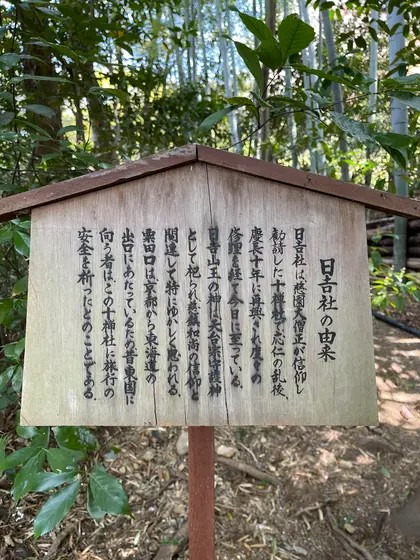 日吉社の由来
日吉社は慈圓大僧正が信仰し
勧請した十禅社で応仁の乱後、
慶長十年に再興され度々の
修理を経て今日に至っている。
日吉山王の神は天台宗守護神
として祀られ慈鎮和尚の信仰と
関連して特にゆかしく思われる。
粟田口は京都から東海道の
出口にあたっているため昔東国に
向う者はこの十禅社に旅行の
安全を祈ったとのことである。